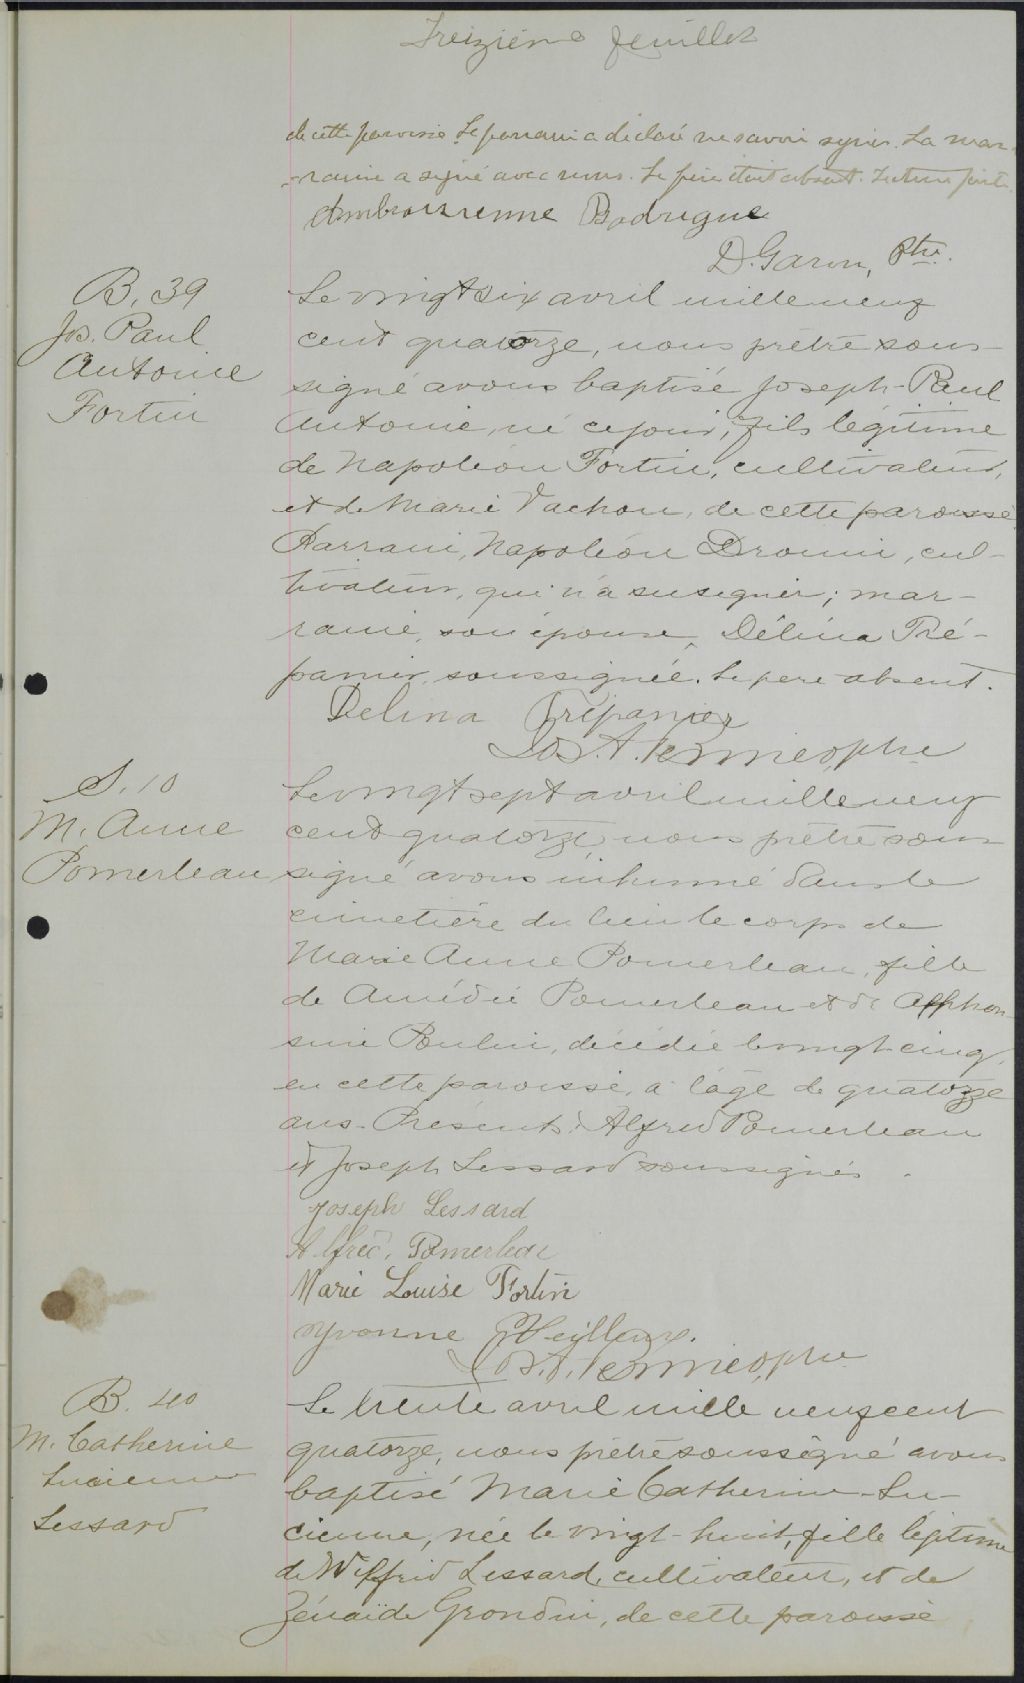 Treizième feuillet
de cette paroisse. Le parrain a déclaré ne savoir signer. La mar-
-raine a signé avec nous. Le père était absent. Lecture faite.
Ambroisienne Rodrigue
D. Garon, Ptre.
B. 39
Jos. Paul
Antoine
Fortin
Le vingt six avril mille neuf
cent quatorze, nous prêtre sous-
signé avons baptisé Joseph-Paul
Antoine, né ce jour, fils légitime
de Napoléon Fortin, cultivateur,
et de Marie Vachon, de cette paroisse
Parrain, Napoléon Drouin, cul-
tivateur, qui n'a su signer; mar-
raine, son épouse, Délina Tré-
panier, soussignée. Le père absent.
Delina Trépanier
Jos. A. ptre
S. 10
M. Anne
Pomerleau
Le vingt sept avril mille neuf
cent quatorze nous prêtre sous
signé avons inhumé dans le
cimetière du lieu le corps de
Marie Anne Pomerleau, fille
de Amédée Pomerleau et de Alphon-
sine Poulin, décédée le vingt-cinq,
en cette paroisse, à l'âge de quatorze
ans. Présents: Alfred Pomerleau
et Joseph Lessard soussignés.
Joseph Lessard
Alfred. Pomerleau
Marie Louise Fortin
Yvonne Veilleux.
Jos. A. ptre
B. 40
M. Catherine
Lucienne
Lessard
Le trente avril mille neuf cent
quatorze, nous prêtre soussigné avons
baptisé Marie Catherine-Lu-
cienne, née le vingt-huit, fille légitime
de Wilfrid Lessard, cultivateur, et de
Zénaïde Grondin, de cette paroisse